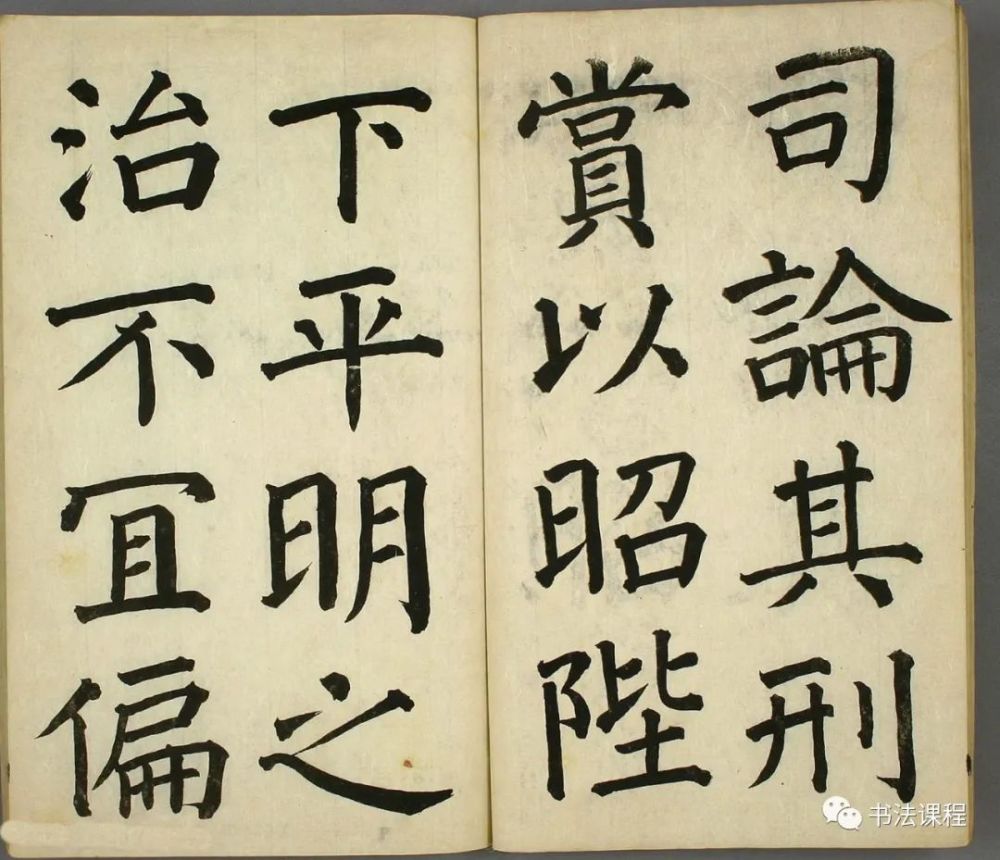 司論其刑
賞以昭陛
下平明之
治不冝偏
书法课程